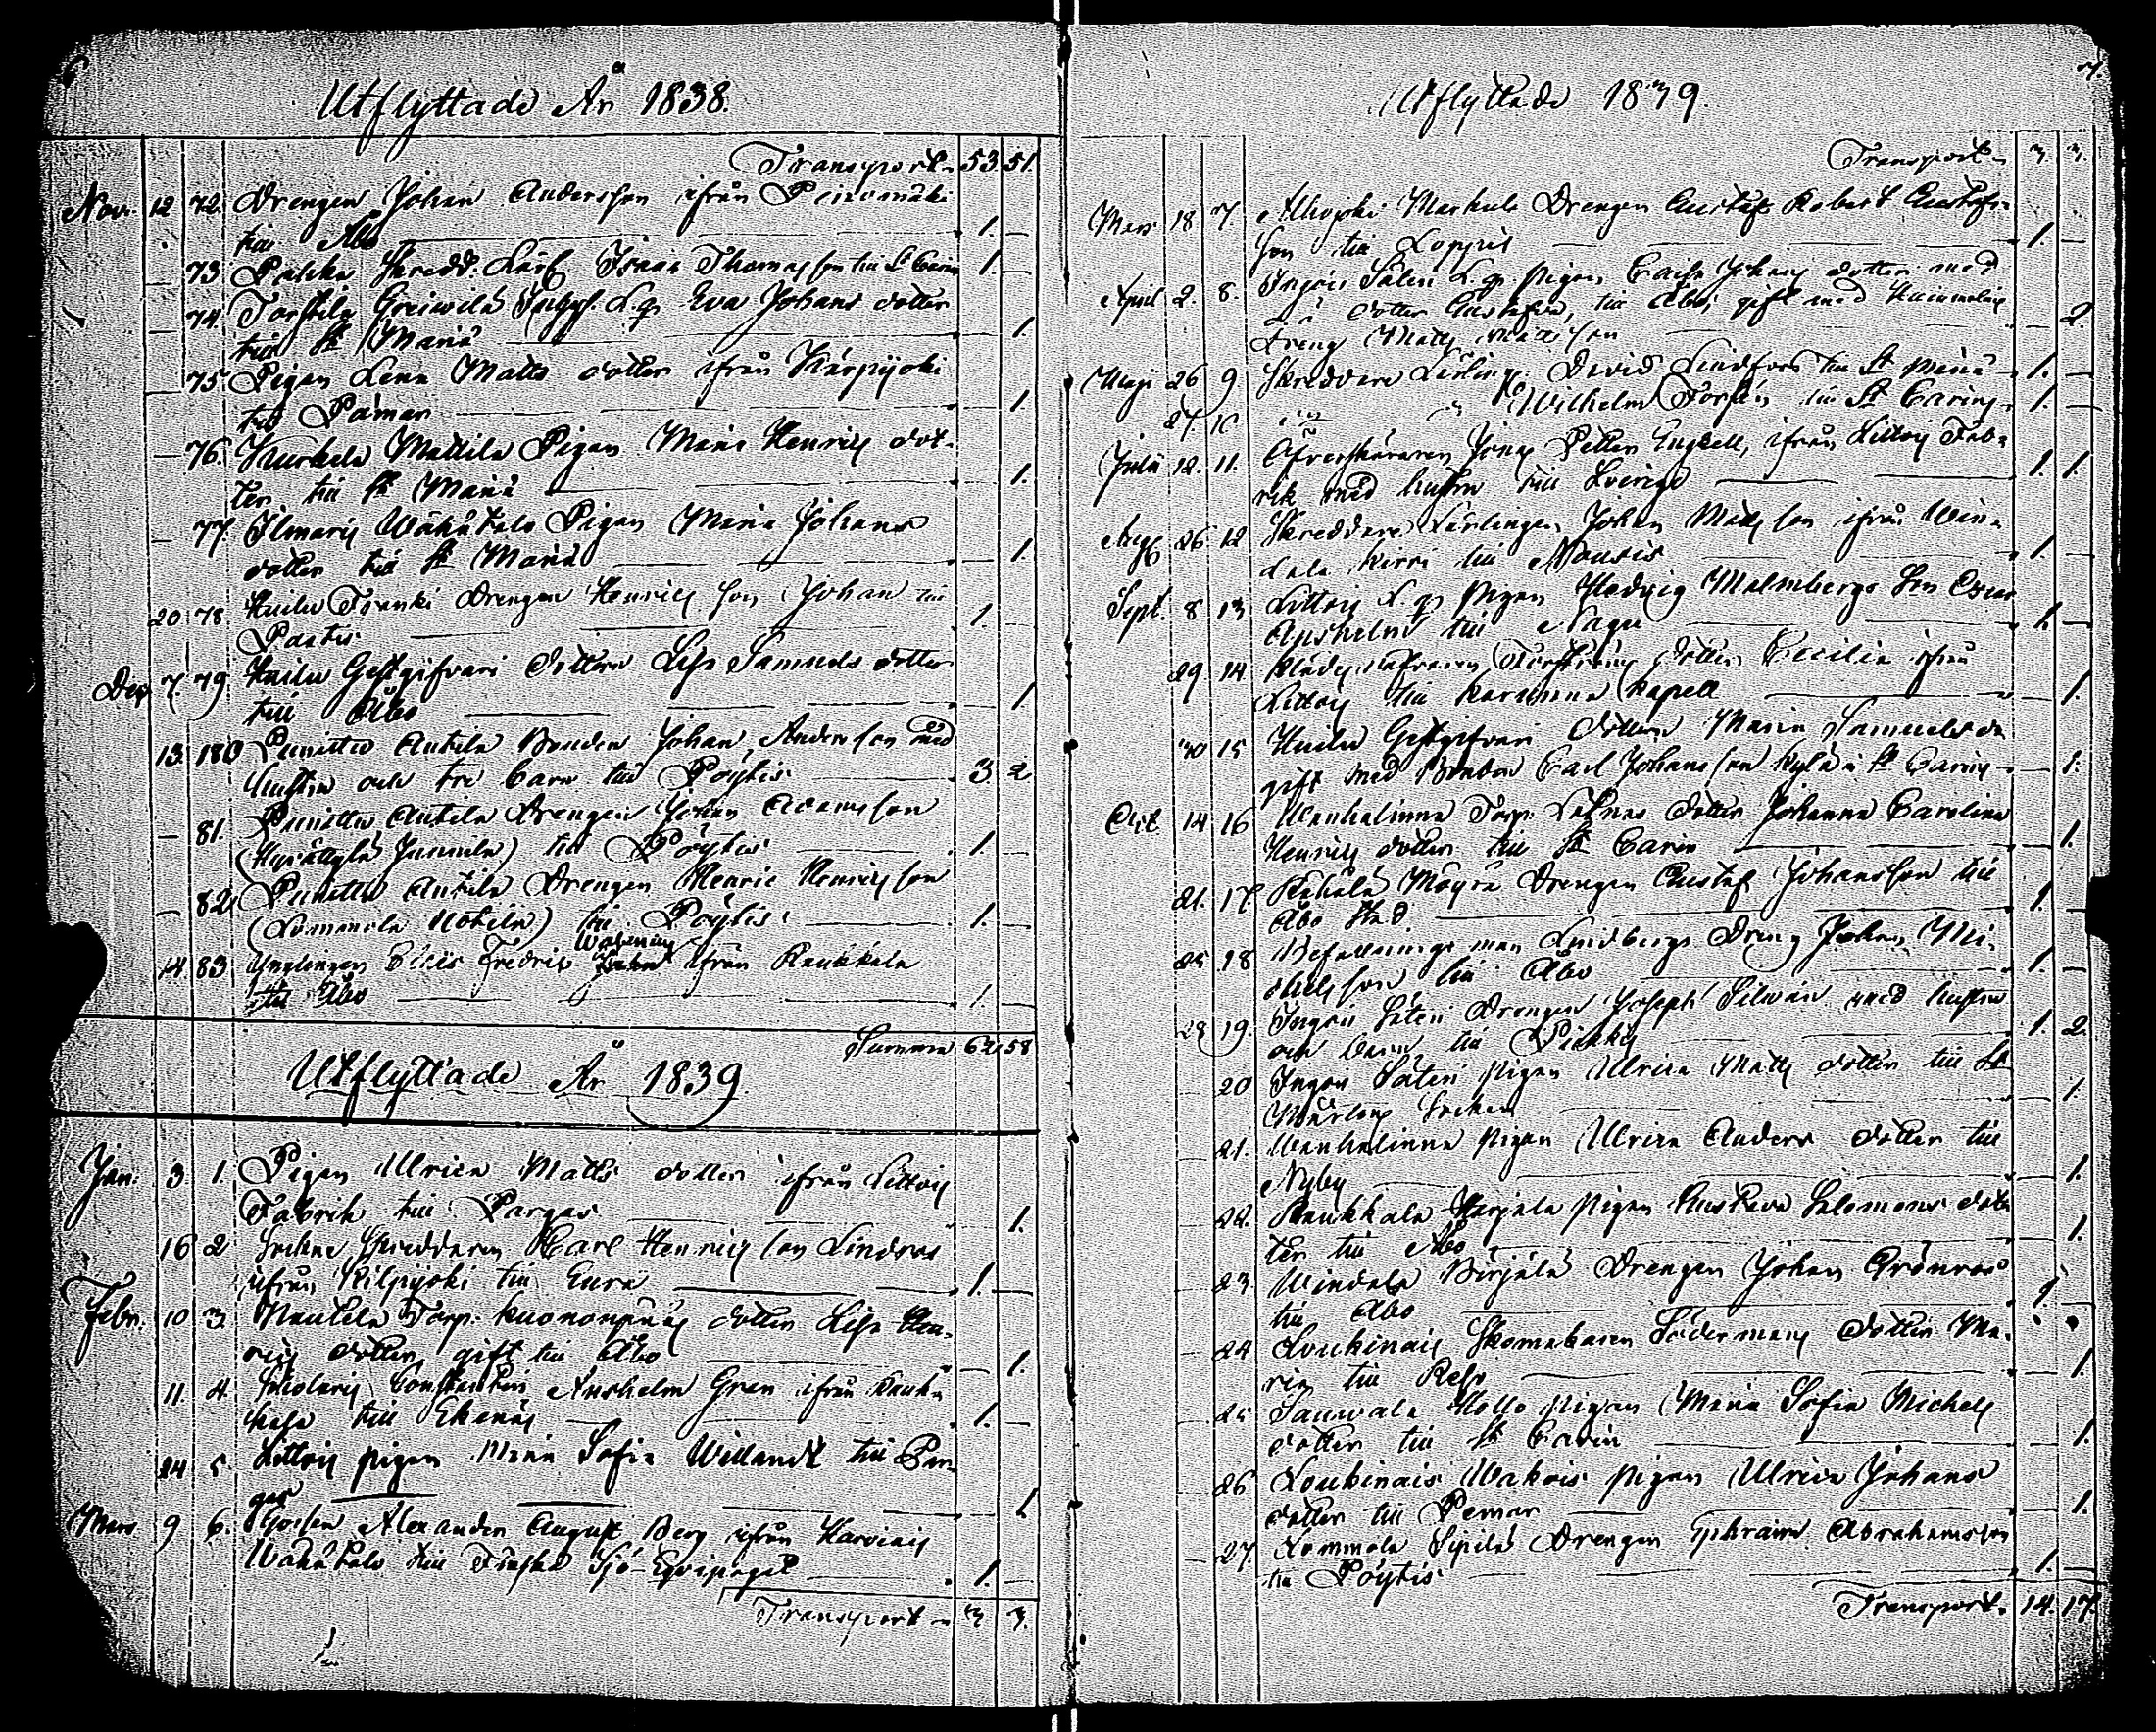 6
Utflyttade År 1838.
Transport 53. 51.
Nov. 12 72. Drengen Johan Andersson ifrån
till Åbo 1.
73 Skredd. Thomasson till St Carin 1.
74. L. qp Eva Johans dotter
till St Mariæ 1.
75. Pigan Lena Matts dotter ifrån Kärpijoki
till Pämar 1.
76. Kurkela Mattila Pigan Maria Henrics dot-
ter till St Mariæ 1.
77. Ilmaris Wähätalo Pigan Maria Johans
dotter till St Mariæ 1.
20 78. Drengen Henrics son Johan till
1.
Dec. 7. 79 Gestgifvari dottren Lisa Samuels dotter
till Åbo 1
13. 180 Punittu Anttila Bonden Johan Andersson med
hustru och tre barn till Pöytis 3 2
81. Punittu Anttila Drengen Johan Adamsson
till Pöytis 1.
82 Punittu Anttila Drengen Henric Henricsson
till Pöytis 1.
14 83 Ynglingen Fredric ifrån Raukkala
till Åbo 1.
Summa 62 58
Utflyttade År 1839.
Jan: 3. 1. Pigan Ulrica Matts dotter ifrån Littois
Fabrik till Pargas 1.
16 2 Sockne Skreddaren Carl Henricsson Lindroos
ifrån till Eura 1.
Febr. 10 3. Nautela Torp: dotter Lisa Hen-
rics dotter, gift till Åbo 1.
11. 4. Constantin Anshelm Gran ifrån Rauk-
kala till Ekenäs 1.
24 5. Littois pigan Maria Sofia Willandt till Par-
gas 1
Mars 9 6. Alexander August Berg ifrån
Wähätalo till Finska Sjö-Eqvipaget 1.
Transport 3 3.
7.
Utflyttade 1839.
Transport 3. 3.
Mars 18 7 Drengen Gustaf Robert Gustafs-
son till Loppis 1.
April 2. 8. L. qp pigan Caisa Johans dotter med
dotter Gustafva, till Åbo, gift med
dreng Matts Mattsson 2.
Maji 26 9 Skreddare Lärling: David Lindfors till St Mariæ 1.
27. 10 Wilhelm Forsén till St Carins 1.
Julii 12. 11. Öfverskäraren Jonas Petter Engzell, ifrån Littois Fab-
rik med hustru till Sverige 1. 1.
Aug 26 12 Skreddare Lärlingen Johan Mattsson ifrån Win-
till Nousis 1
Sept. 8 13 Littois L. qp pigan Hedvig Malmbergs son Oscar
till Nagu 1.
29. 14. dotter Cecilia ifrån
Littois till Karuna Kapell 1.
30 15 Gestgifvari dottren Maria Samuelsd:r
gift med Bonden Carl Johansson i St Carins 1.
Oct. 14 16 Wanhalinna Torp. dotter Johanna Carolina
Henrics dotter till St Carin 1.
21. 17. Drengen Gustaf Johansson till
Åbo stad 1.
25 18 Befallningsman Lindbergs Dreng Johan Mi-
chelsson till Åbo 1.
28 19. Säteri Drengen Joseph Silwan med hustru
och barn till 1. 2.
20 Säteri pigan Ulrica Matts dotter till St
Mårtens Socken 1.
21. Wanhalinna pigan Ulrica Anders dotter till
Nyby 1.
22. Raukkala pigan Gustava Salomons dot-
ter till Åbo 1.
23. Drengen Johan Grönroos
till Åbo 1.
24 Loukinais Skomakaren Södermans dotter Ma-
ria till Reso 1.
25 Sauwala Hollo pigan Maria Sofia Michels
dotter till St Carin 1.
26 Loukinais pigan Ulrica Johans
dotter till Pemar 1.
27. Lommola Sipilä Drengen Ephraim Abrahamsson
till Pöytis 1.
Transport 14. 17.